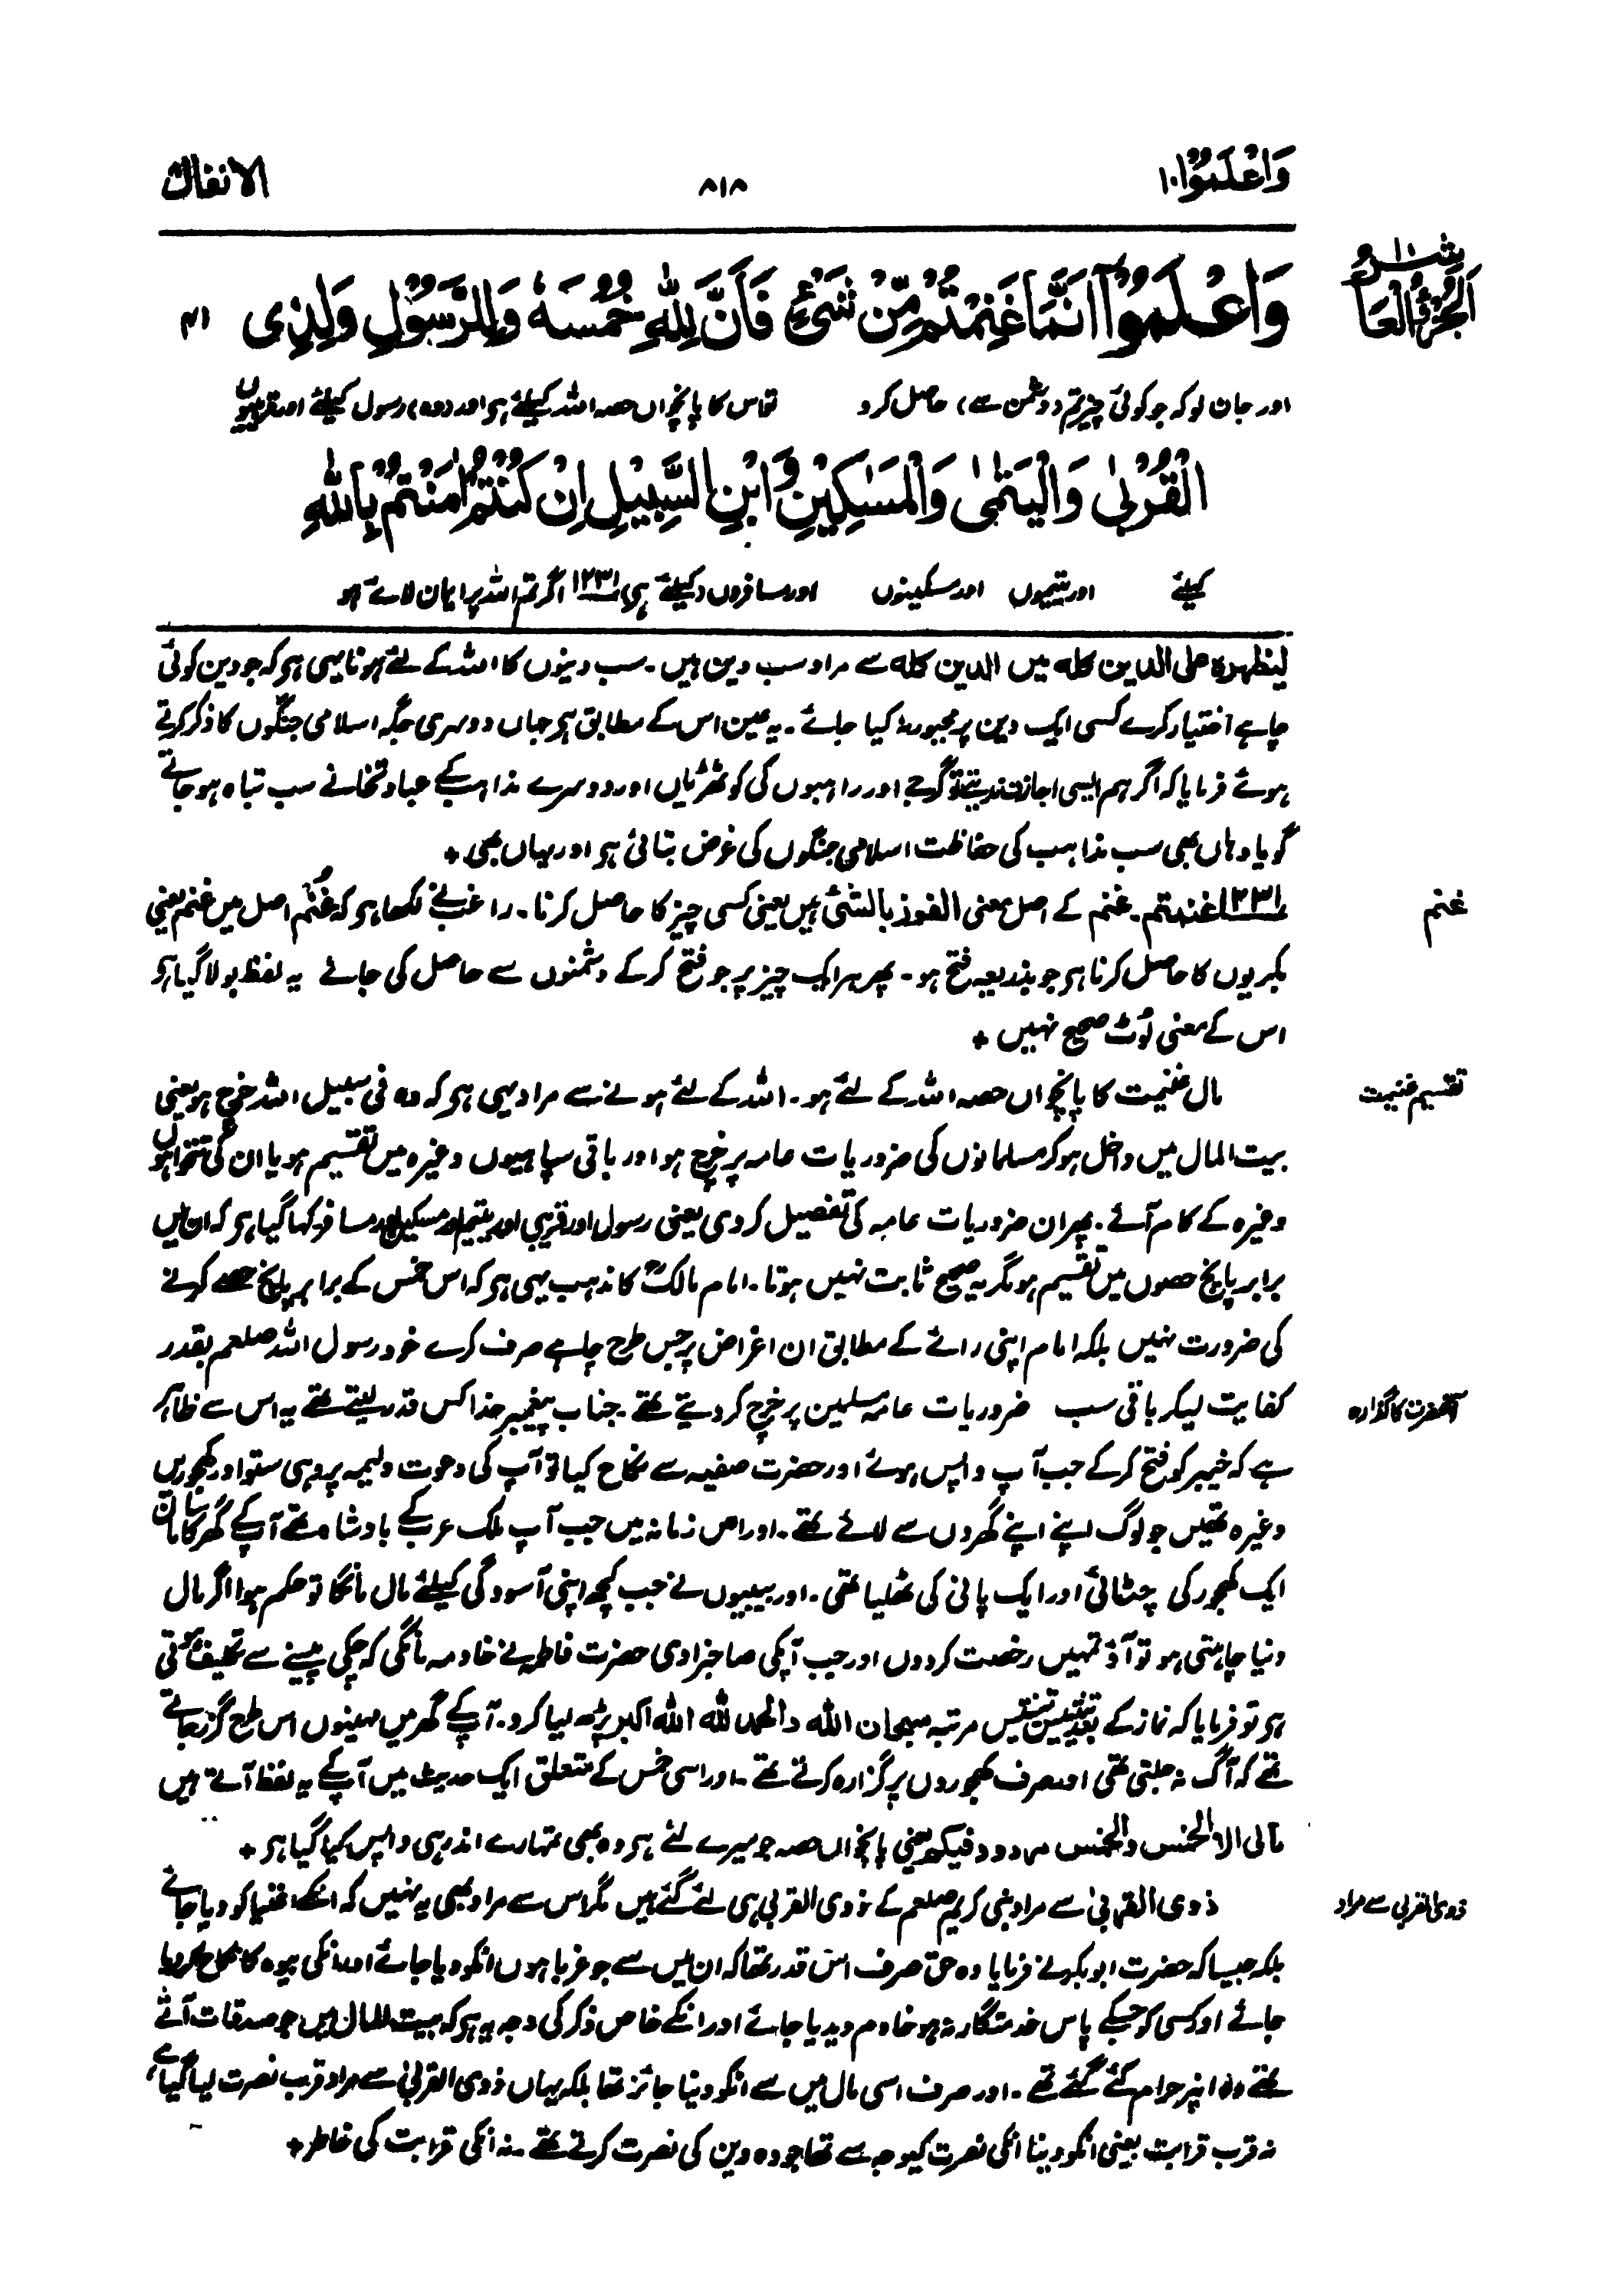 وَاعْلَمُوْٓا ١٠
٨١٨
الانفال
الجزءُ العاشر ١٠
وَاعْلَمُوْٓا اَنَّمَا غَنِمْتُمْ مِّنْ شَیْءٍ فَاَنَّ لِلّٰهِ خُمُسَهٗ وَلِلرَّسُوْلِ وَلِذِی ۴۱
اور جان لو کہ جو کوئی چیز تم (دشمن سے) حاصل کرو تو اس کا پانچواں حصہ اللہ کیلئے ہی اور (وہ) رسول کیلئے اور قریبیوں
الْقُرْبٰی وَالْیَتٰمٰی وَالْمَسٰکِیْنِ وَابْنِ السَّبِیْلِ اِنْ کُنْتُمْ اٰمَنْتُمْ بِاللّٰهِ
کیلئے اور یتیموں اور مسکینوں اور مسافروں (کیلئے) ہی ۱۲۳۱ اگر تم اللہ پر ایمان لائے ہو
لیظهره علی الدین کله میں الدین کله سے مراد سب دین ہیں۔ سب دینوں کا اللہ کے لئے ہونا یہی ہی کہ جو دین کوئی
چاہے اختیار کرے کسی ایک دین پر مجبور نہ کیا جائے۔ یہ عین اس کے مطابق ہی جہاں دوسری جگہ اسلامی جنگوں کا ذکر کرتے
ہوئے فرمایا کہ اگر ہم ایسی اجازت نہ دیتے تو گرجے اور راہبوں کی کوٹھڑیاں اور دوسرے مذاہب کے عبادتخانے سب تباہ ہو جاتے
گویا وہاں بھی سب مذاہب کی حفاظت اسلامی جنگوں کی غرض بتائی ہی اور یہاں بھی +
غنم
۱۲۳۱ غنمتم۔ غنم کے اصل معنی الفوز بالشئ ہیں یعنی کسی چیز کا حاصل کرنا۔ راغب نے لکھا ہی کہ غُنْم اصل میں غنم یعنی
بکریوں کا حاصل کرنا ہی جو بذریعہ فتح ہو۔ پھر ہر ایک چیز پر جو فتح کر کے دشمنوں سے حاصل کی جائے یہ لفظ بولا گیا ہی
اس کے معنی لُوٹ صحیح نہیں +
تقسیم غنیمت
مال غنیمت کا پانچواں حصہ اللہ کے لئے ہو۔ اللہ کے لئے ہونے سے مراد یہی ہی کہ وہ فی سبیل اللہ خرچ ہو یعنی
بیت المال میں داخل ہو کر مسلمانوں کی ضروریات عامہ پر خرچ ہو اور باقی سپاہیوں وغیرہ میں تقسیم ہو یا ان کی تنخواہوں
وغیرہ کے کام آئے۔ پھر ان ضروریات عامہ کی تفصیل کر دی یعنی رسول اور قریبی اور یتیم اور مسکین اور مسافر کہا گیا ہی کہ ان میں
برابر پانچ حصوں میں تقسیم ہو مگر یہ صحیح ثابت نہیں ہوتا۔ امام مالک کا مذہب یہی ہی کہ اس خمس کے برابر پانچ حصے کرنے
کی ضرورت نہیں بلکہ امام اپنی رائے کے مطابق ان اغراض پر جس طرح چاہے صرف کرے خود رسول اللہ صلعم بقدر
آنحضرت کا گذارہ
کفایت لیکر باقی سب ضروریات عامہ مسلمین پر خرچ کر دیتے تھے۔ جناب پیغمبر خدا کس قدر لیتے تھے یہ اس سے ظاہر
ہے کہ خیبر کو فتح کر کے جب آپ واپس ہوئے اور حضرت صفیہ سے نکاح کیا تو آپ کی دعوت ولیمہ پر وہی ستو اور کھجوریں
وغیرہ تھیں جو لوگ اپنے اپنے گھروں سے لائے تھے۔ اور اس زمانہ میں جب آپ ملک عرب کے بادشاہ تھے آپ کے گھر کا سامان
ایک کھجور کی چٹائی اور ایک پانی کی ٹھلیا تھی۔ اور بیبیوں نے جب کچھ اپنی آسودگی کیلئے مال مانگا تو حکم ہوا اگر مال
دنیا چاہتی ہو تو آؤ تمہیں رخصت کردوں اور جب آپکی صاحبزادی حضرت فاطمہ نے خادمہ مانگی کہ چکی پیسنے سے تکلیف ہوتی
ہی تو فرمایا کہ نماز کے بعد تینتیس تینتیس مرتبہ سبحان اللہ والحمد للہ اللہ اکبر پڑھ لیا کرو۔ آپ کے گھر میں مہینوں اس طرح گزر جاتے
تھے کہ آگ نہ جلتی تھی اور صرف کھجوروں پر گزارہ کرتے تھے۔ اور اسی خمس کے متعلق ایک حدیث میں آپ کے یہ لفظ آتے ہیں
مالی الا الخمس والخمس مردود فیکم یعنی پانچواں حصہ جو میرے لئے ہی وہ بھی تمہارے اندر ہی واپس کیا گیا ہی +
ذوی القربی سے مراد
ذوی القربیٰ سے مراد نبی کریم صلعم کے ذوی القربیٰ ہی لئے گئے ہیں مگر اس سے مراد بھی یہ نہیں کہ انکے اغنیا کو دیا جائے
بلکہ جیسا کہ حضرت ابوبکر نے فرمایا وہ حق صرف اس قدر تھا کہ ان میں سے جو غربا ہوں انکو دیا جائے اور انکی بیوہ کا نکاح کر دیا
جائے اور کسی کو جسکے پاس خدمتگار نہ ہو خادم دیدیا جائے اور انکے خاص ذکر کی وجہ یہ ہی کہ بیت المال میں جو صدقات آتے
تھے وہ انپر حرام کئے گئے تھے۔ اور صرف اسی مال میں سے انکو دینا جائز تھا بلکہ یہاں ذوی القربیٰ سے مراد قرب نصرت لیا گیا ہے
نہ قرب قرابت یعنی انکو دینا انکی نصرت کیوجہ سے تھا جو وہ دین کی نصرت کرتے تھے۔ نہ انکی قرابت کی خاطر +